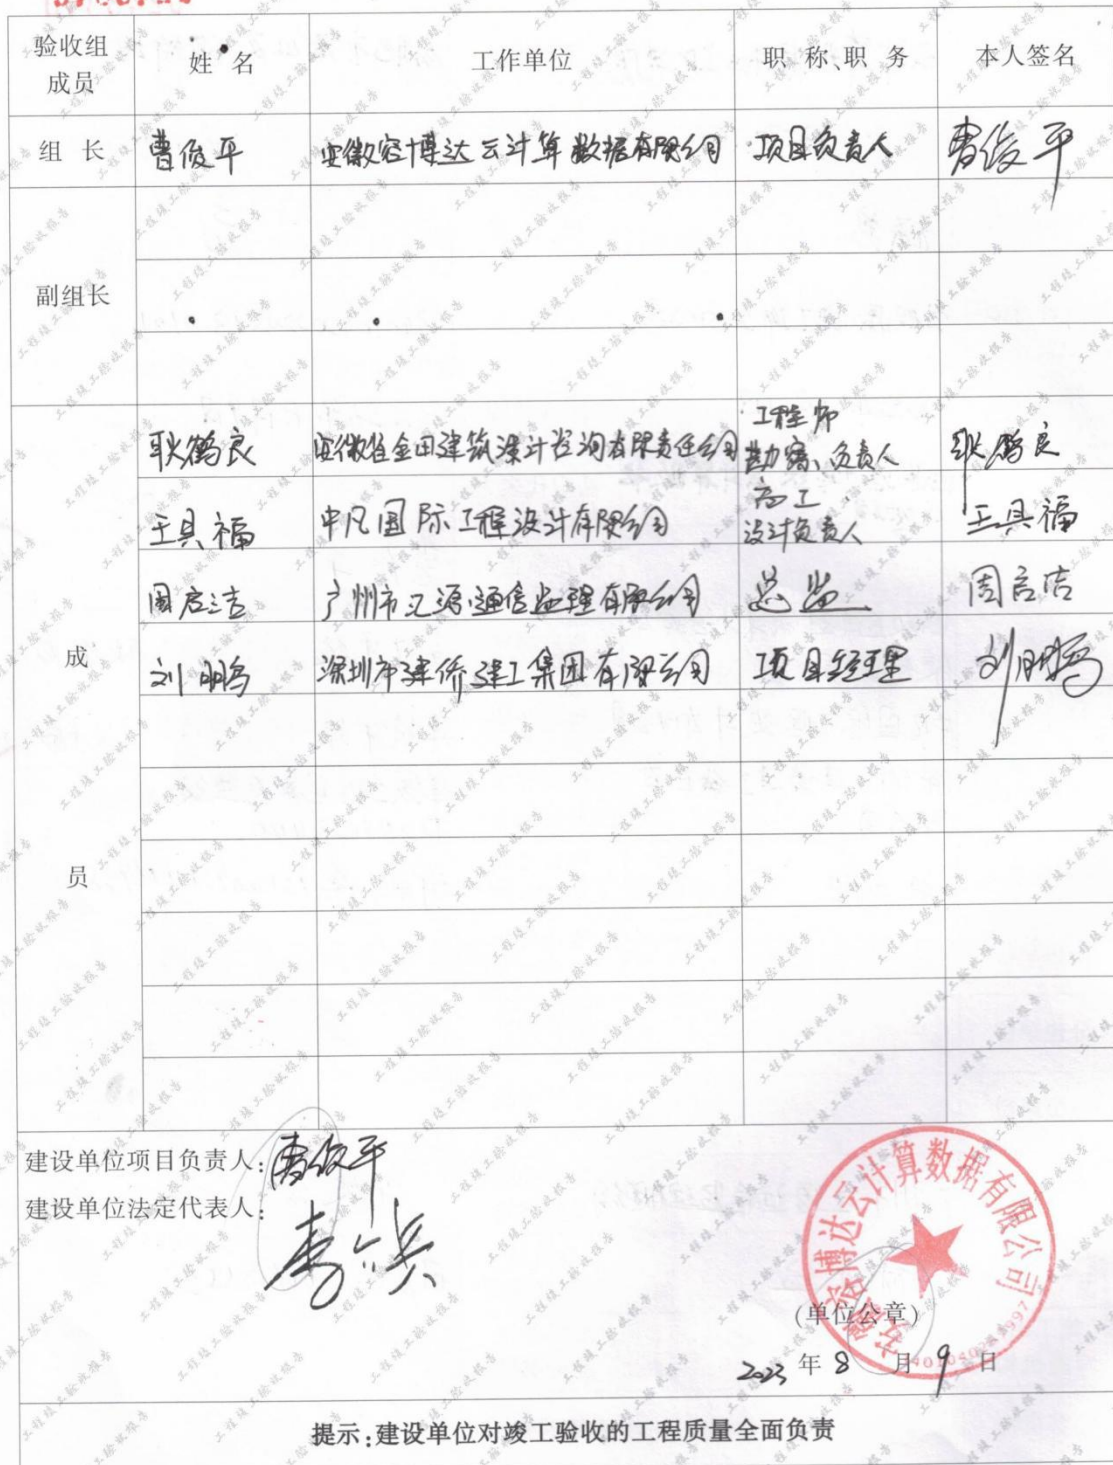 验收组
成员
姓 名
工作单位
职 称、职 务
本人签名
组 长
曹俊平
安徽容博达云计算数据有限公司
项目负责人
曹俊平
副组长
成
员
耿鹤良
安徽省金田建筑设计咨询有限责任公司
工程师
勘察、负责人
耿鹤良
王具福
中凡国际工程设计有限公司
高工
设计负责人
王具福
周启洁
广州市汇源通信监理有限公司
总监
周启洁
刘鹏
深圳市建侨建工集团有限公司
项目经理
刘鹏
建设单位项目负责人：曹俊平
建设单位法定代表人：
安徽容博达云计算数据有限公司
(单位公章)
2023 年 8 月 9 日
提示：建设单位对竣工验收的工程质量全面负责
工程竣工验收报告